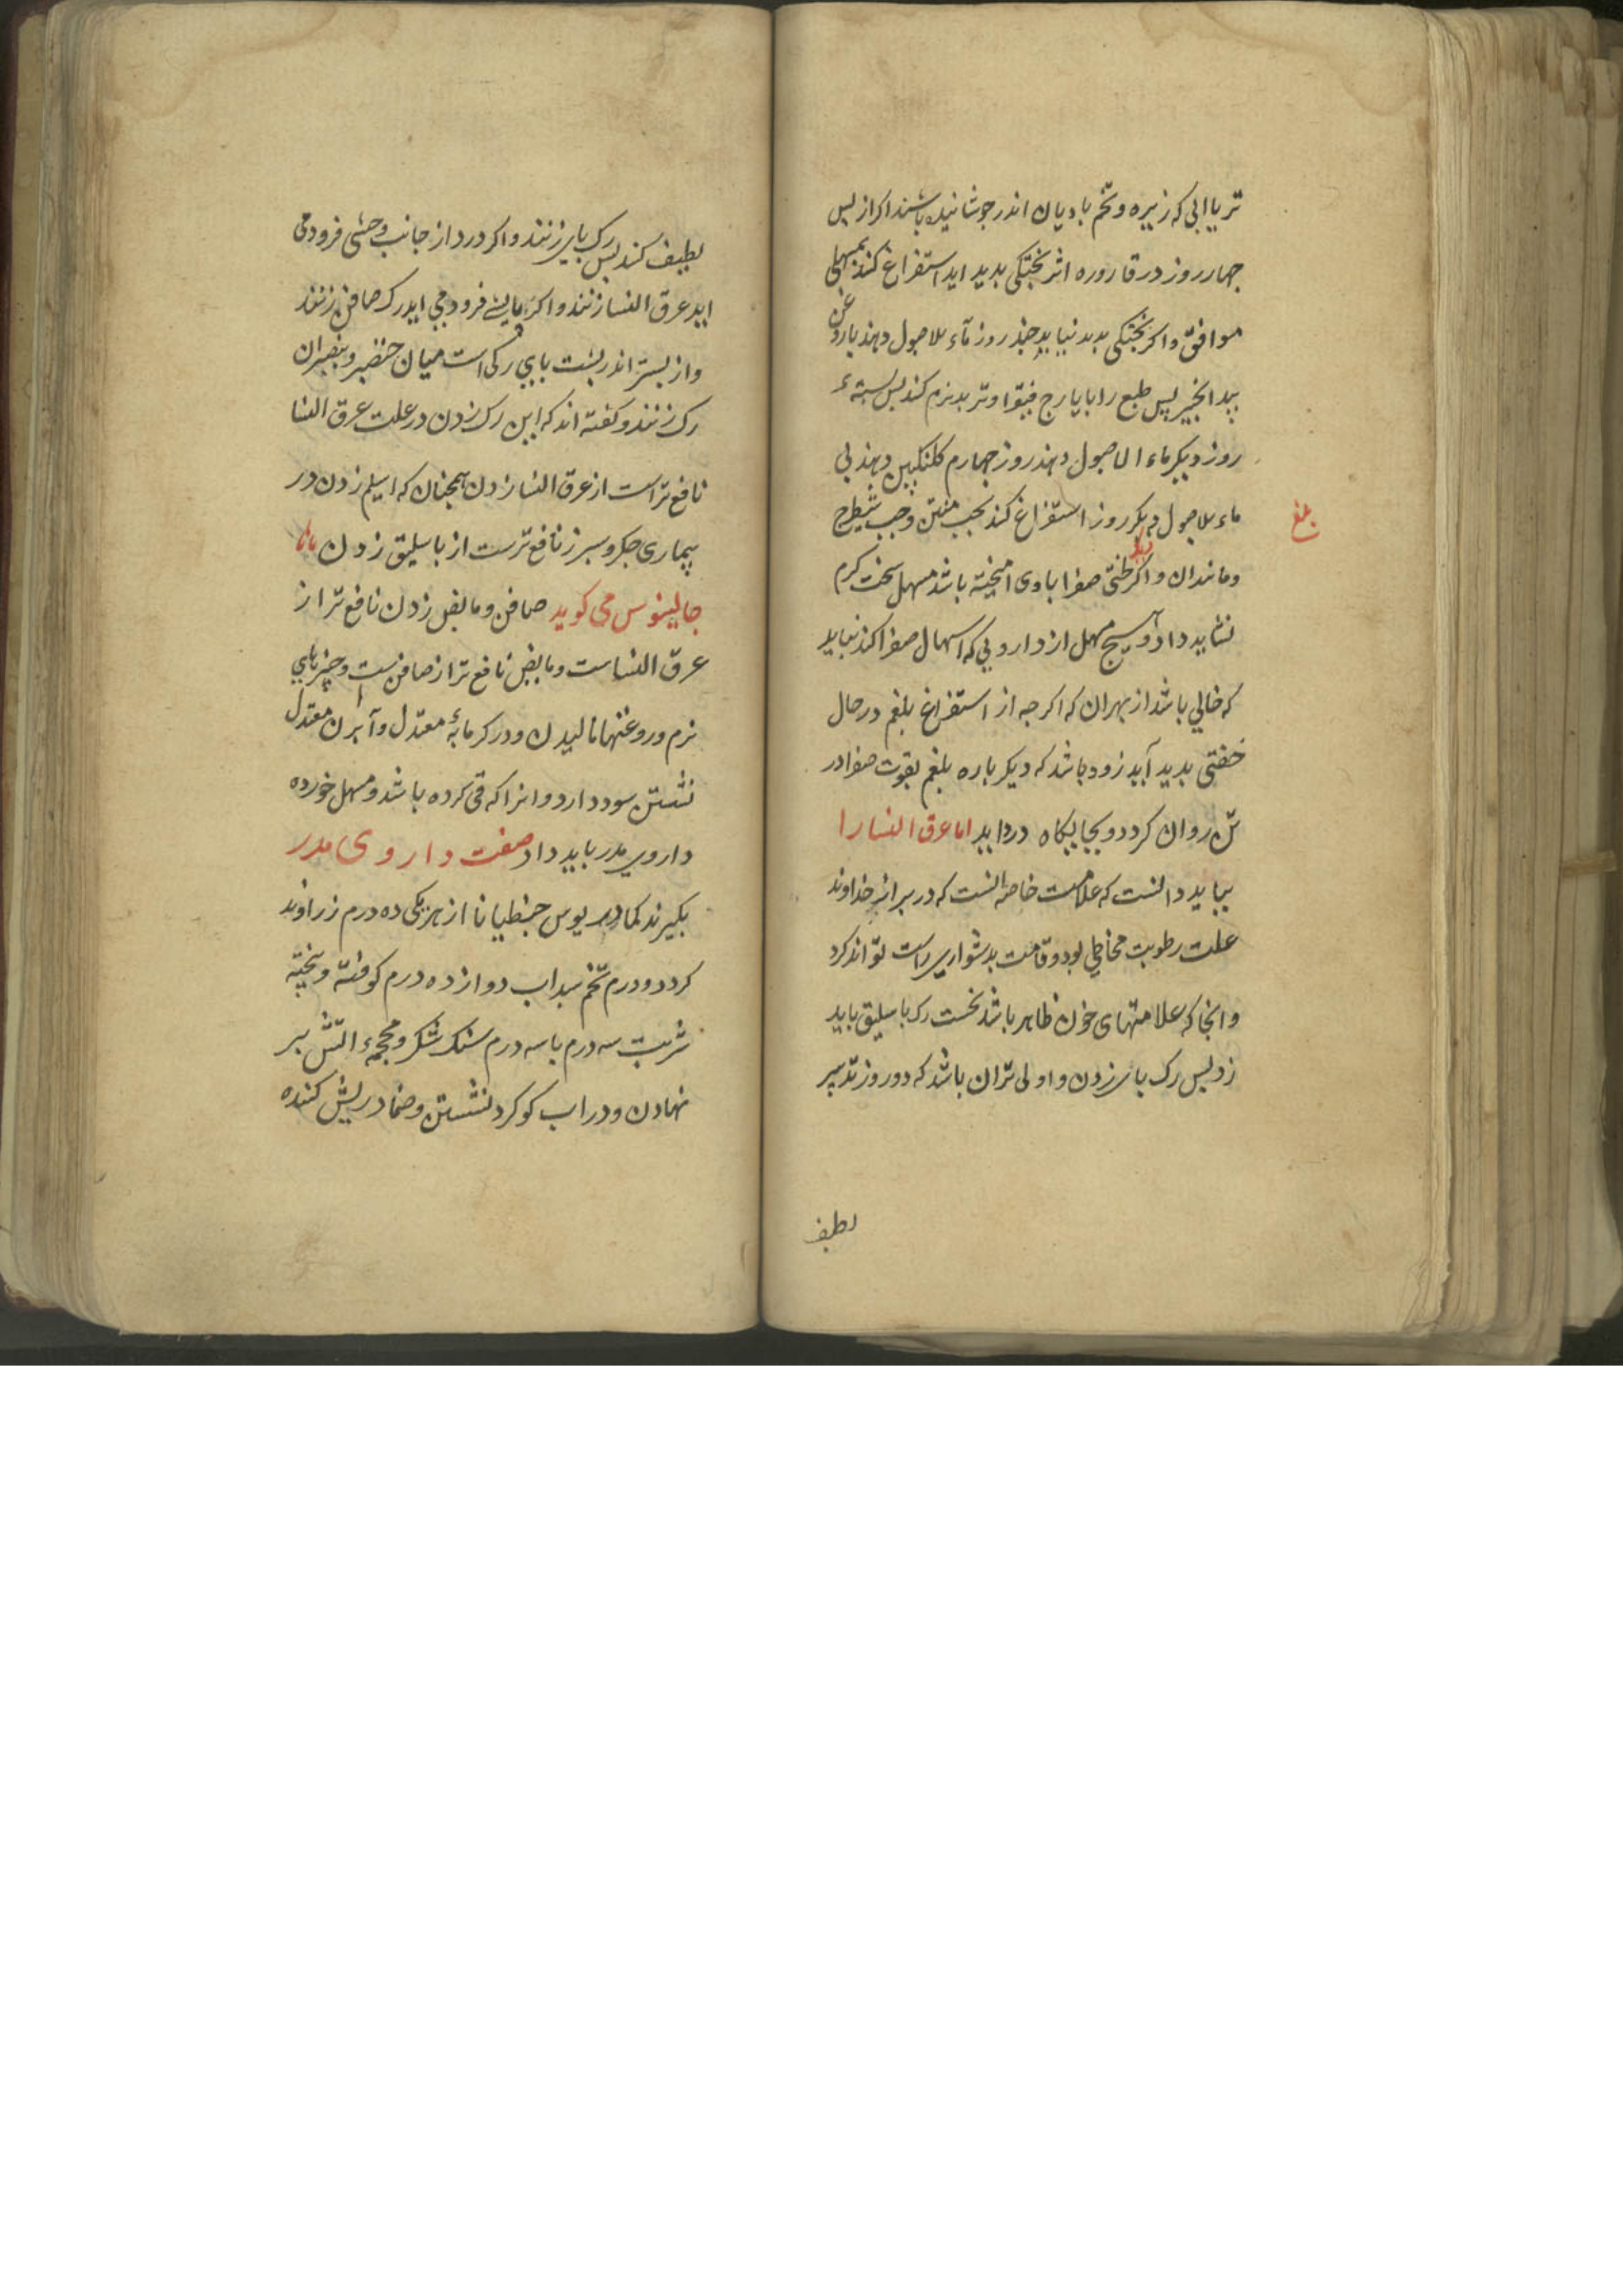 تر یا ابی که زیره و تخم بادیان اندر جوشانیده باشند اکر از پس
جهار روز در قاروره اثر پختکی بدید اید استفراغ کند بمسهلی
موافق و اکر پختکی بدید نیاید جند روز ماء الاصول دهند با روغن
بید انجیر پس طبع را بایارج فیقرا و تربد نرم کند پس سه
روز دیکر ماء الاصول دهند روز جهارم کلنکبین دهند بی
ماء الاصول دیکر روز استفراغ کند بحب منتن و حب شیطرج
بلغ
و مانند ان و اکر خلطی صفرا با وی امیخته باشد مسهل سخت کرم
نشاید داد و هیج مسهل از دارویی که اسهال صفرا کند نباید
که خالی باشد از بهر ان که اکر جه از استفراغ بلغم در حال
خفتی بدید آید زود باشد که دیکر باره بلغم بقوت صفرا در
تن روان کردد و بجایکاه درد اید اما عرق النسا را
بباید دانست که علامت خاصه انست که در براز خداوند
علت رطوبت مخاطی بود و قامت بدشواری راست تواند کرد
و انجا که علامتهای خون ظاهر باشد نخست رک باسلیق باید
زد پس رک پای زدن و اولی تر ان باشد که دو روز تدبیر
لطیف
لطیف کند پس رک پای زنند و اکر درد از جانب وحشی فرود می
اید عرق النسا زنند و اکر فرود می اید رک صافن زنند
و از پستر اندر پشت پای رکی است میان خنصر و بنصر ان
رک زنند و کفته اند که این رک زدن در علت عرق النسا
نافع تر است از عرق النسا زدن همجنان که اسیلم زدن در
بیماری جکر و سبرز نافع ترست از باسلیق زدن
جالینوس می کوید صافن و مابض زدن نافع تر از
عرق النسا است و مابض نافع تر از صافن ست و جیزهای
نرم و روغنها مالیدن و در کرمابه معتدل و آبزن معتدل
نشستن سود دارد و انرا که قی کرده باشد و مسهل خورده
داروی مدر باید داد صفت داروی مدر
بکیرند کمادریوس جنطیانا از هر یکی ده درم زراوند
کرد دو درم تخم سداب دوازده درم کوفته و بیخته
شربت سه درم با سه درم سنک شکر و محجمه اتش بر
نهادن و در اب کوکرد نشستن و ضماد ریش کننده